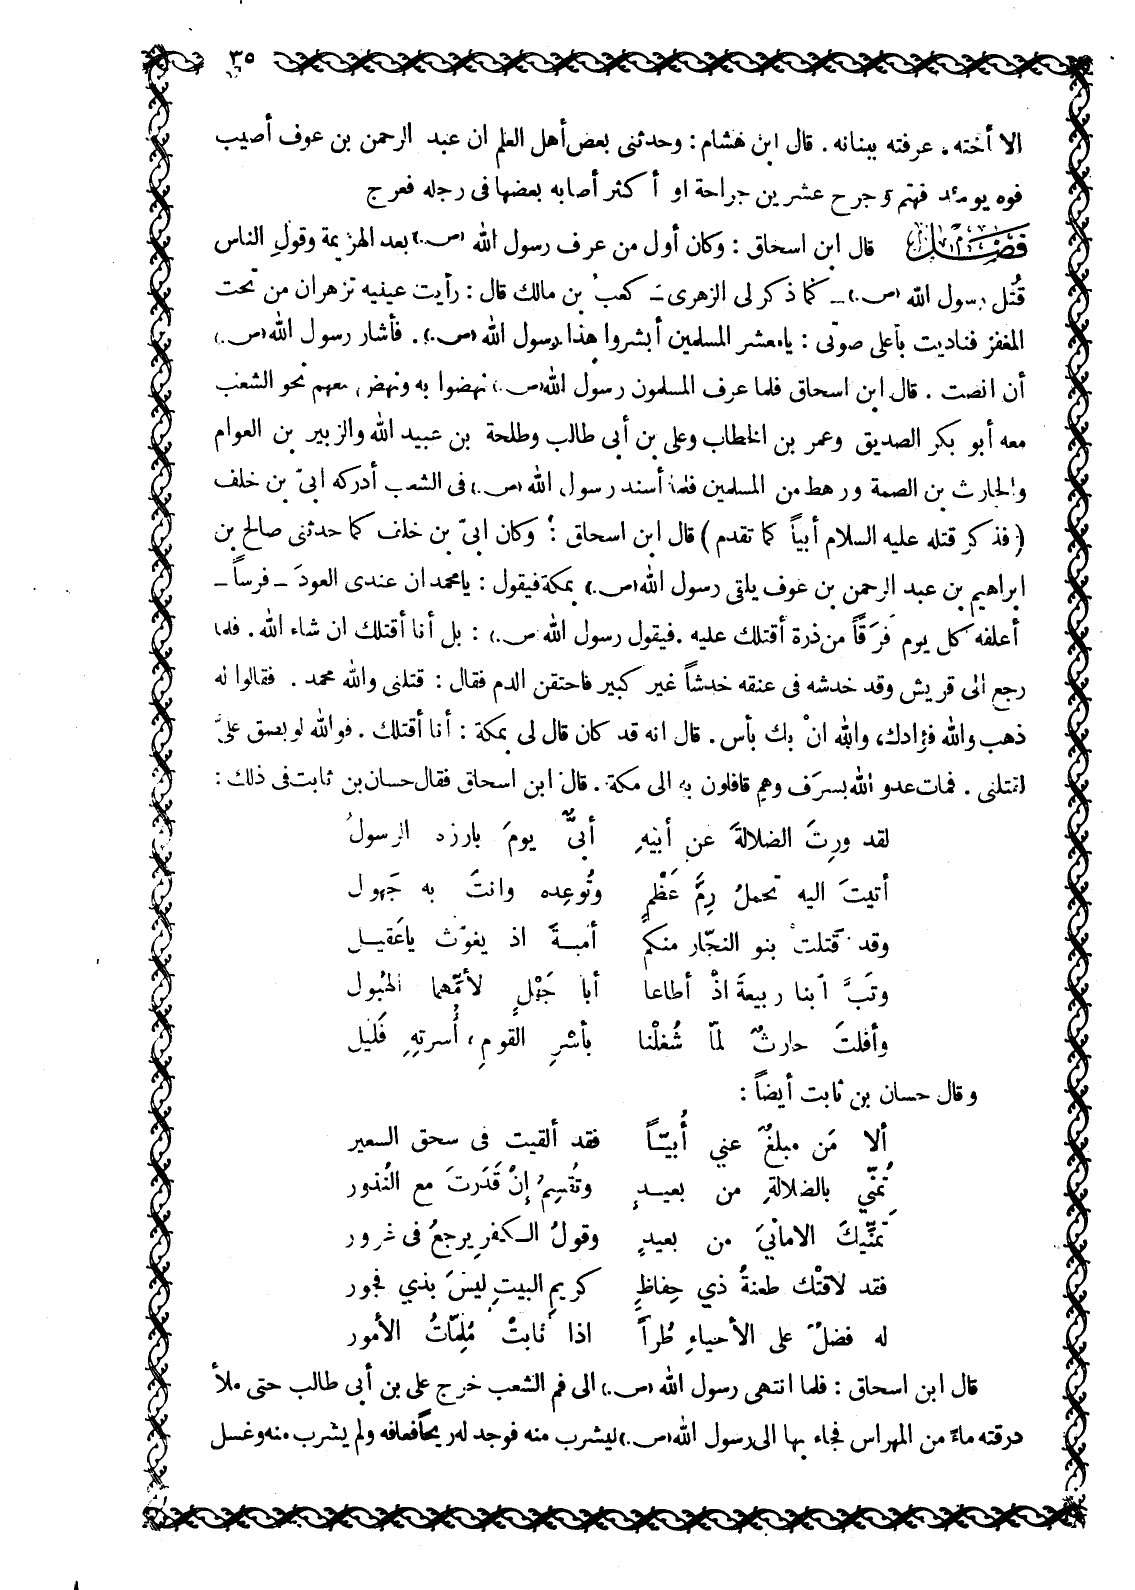 ٣٥
الا أخته. عرفته ببنانه. قال ابن هشام: وحدثنى بعض أهل العلم ان عبد الرحمن بن عوف أصيب
فوه يومئذ فهتم وجرح عشرين جراحة او أكثر أصابه بعضها فى رجله فعرج
فصل قال ابن اسحاق: وكان أول من عرف رسول الله (ص.) بعد الهزيمة وقول الناس
قُتل رسول الله (ص.) ــ كما ذكر لى الزهرى ــ كعب بن مالك قال: رأيت عينيه تزهران من تحت
المغفر فناديت بأعلى صوتى: يامعشر المسلمين أبشروا هذا رسول الله (ص.). فأشار رسول الله (ص.)
أن انصت. قال ابن اسحاق فلما عرف المسلمون رسول الله (ص.) نهضوا به ونهض معهم نحو الشعب
معه أبو بكر الصديق وعمر بن الخطاب وعلى بن أبى طالب وطلحة بن عبيد الله والزبير بن العوام
والحارث بن الصمة ورهط من المسلمين فلما أسند رسول الله (ص.) فى الشعب أدركه ابىّ بن خلف
(فذكر قتله عليه السلام أبياً كما تقدم) قال ابن اسحاق: وكان ابىّ بن خلف كما حدثنى صالح بن
ابراهيم بن عبد الرحمن بن عوف يلقى رسول الله (ص.) بمكة فيقول: يامحمد ان عندى العودَ ــ فرساً ــ
أعلفه كل يوم فَرَقاً من ذرة أقتلك عليه. فيقول رسول الله (ص.): بل أنا أقتلك ان شاء الله. فلما
رجع الى قريش وقد خدشه فى عنقه خدشاً غير كبير فاحتقن الدم فقال: قتلنى والله محمد. فقالوا له
ذهب والله فؤادك، والله انْ بك بأس. قال انه قد كان قال لى بمكة: أنا أقتلك. فوالله لو بصق علىَّ
لقتلنى. فمات عدو الله بسرَف وهم قافلون به الى مكة. قال ابن اسحاق فقال حسان بن ثابت فى ذلك:
لقد ورِثَ الضلالةَ عن أبيهِ أبىٌّ يومَ بارزه الرسولُ
أتيتَ اليه تحملُ رِمَّ عَظْمٍ وتُوعِده وانتَ به جَهول
وقد قتلتْ بنو النجّار منكم أميةَ اذ يغوّث ياعَقيل
وتَبَّ ابنا ربيعةَ اذْ أطاعا أبا جَهْلٍ لأمِّهما الهُبول
وأفلتَ حارثٌ لمّا شُغلْنا بأسْرِ القومِ، أُسرتهِ فَليل
وقال حسان بن ثابت أيضاً:
ألا مَن مبلغٌ عني أُبيّاً فقد ألقيت فى سحق السعير
تُمنّي بالضلالةِ من بعيدٍ وتُقسِمُ إنْ قَدَرتَ مع النُذور
تمنِّيكَ الامانيَ من بعيدٍ وقولُ الكفرِ يرجعُ فى غرور
فقد لاقتْك طعنةُ ذي حِفاظٍ كريمِ البيتِ ليسَ بذي فجور
له فضلٌ على الأحياءِ طُراً اذا نابتْ مُلِمّاتُ الأمور
قال ابن اسحاق: فلما انتهى رسول الله (ص.) الى فم الشعب خرج على بن أبى طالب حتى ملأ
درقته ماءً من المهراس فجاء بها الى رسول الله (ص.) ليشرب منه فوجد له ريحاً فعافه ولم يشرب منه وغسل